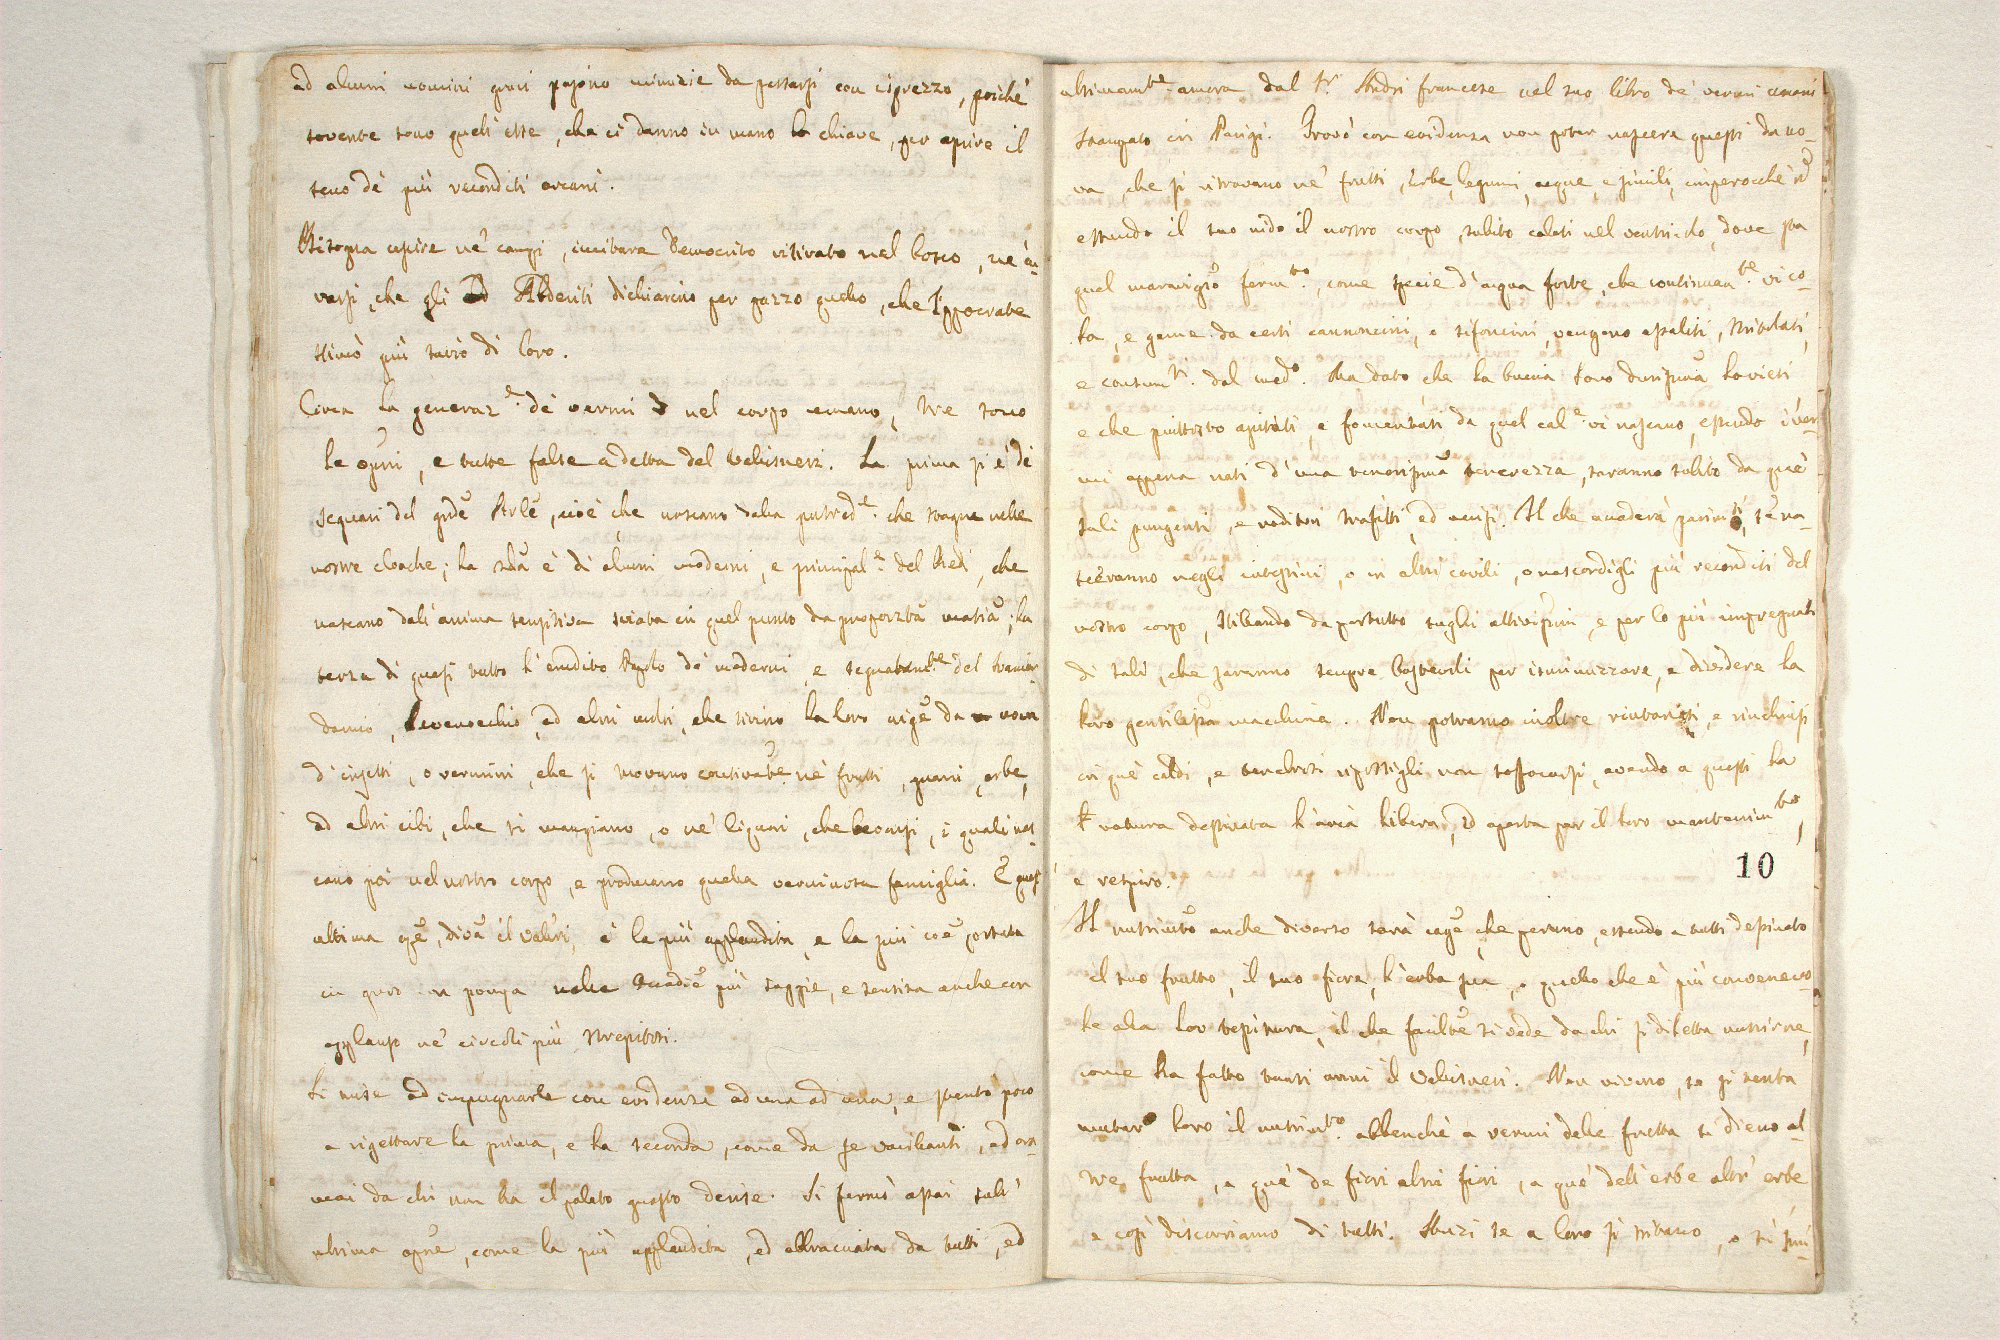 ad alcuni uomini gravi pajono minuzie da gettarsi con isprezzo, poichè
sovente sono quell'esse, che ci danno in mano la chiave, per aprire il
seno de' più reconditi arcani.
Bisogna uscire ne' campi, imitare Democrito ritirato nel bosco, ne cu-
rarsi, che gli Abderiti dichiarino per pazzo quello, che Ippocrate
stimò più savio di loro.
Circa la generaz.e de' vermi nel corpo umano, tre sono
le opnni, e tutte false a detta del Valisneri. La prima si è de'
seguaci del grde Arle, cioè che nascano dalla putred.e che stagna nelle
nostre cloache; la 2da è di alcuni moderni, e principal.e del Redi, che
nascano dall'anima sensitiva sviata in quel punto da proporzta matia; la
terza di quasi tutto l'erudito stuolo de' moderni, e segnatam.te del
damio, Levenoechio, ed altri, che tirino la loro orige da uova
d'insetti, o vermini, che si trovano ne' frutti, grani, erbe,
ed altri cibi, che si mangiano, o ne' liquori, che beonsi, i quali nas-
cano poi nel nostro corpo, e producano quella verminosa famiglia. E quest'
ultima opne, dice il Valisri, è la più applaudita, e la più, portata
in pompa nelle Accadie più saggie, e sentita anche con
applauso ne' circoli più strepitosi.
Si mise ad impugnarle con evidenza ad una ad una, e stentò poco
a rigettare la prima, e la seconda, come da se vacillanti, ed ora-
mai da chi non ha il palato guasto derise. Si fermò assai sull'
ultima opne, come la più applaudita, ed abbracciata da tutti, ed
ultimam.te ancora dal Sr. Andri francese nel suo libro de' vermi umani
stampato in Parigi. Provò con evidenza non poter nascere questi da uo-
va, che si ritrovano ne' frutti, erbe, legumi, acque, e simili, imperocchè
essendo il suo nido il nostro corpo, subito calati nel ventricolo, dove sta
quel maravigio ferm.to, come specie d'acqua forte, che continuam.te vi co-
la, e geme da certi cannoncini, e sifoncini, vengono assaliti, stritolati,
e consum.ti dal med.o. Ma dato che la buccia loro durissima lo vieti
e che piuttosto ajutati, e fomentati da quel cal.e vi nascano, essendo i ver-
mi appena nati d'una tenerissima tenerezza, saranno subito da que'
sali pungenti, e roditori trafitti, ed uccisi. Il che accaderà parimti, se na-
sceranno negli intestini, o in altri covili, o nascondigli più reconditi del
nostro corpo, stillando dapertutto sughi attivissimi, e per lo più impregnati
di sali, che saranno sempre bastevoli per isminuzzare, e dividere la
loro gentilissa macchina. Non potranno inoltre rintanati, e rinchiusi
in que' caldi, e tenebrosi ripostigli non soffocarsi, avendo a questi la
natura destinata l'aria libera, ed aperta per il loro mantenim.to,
10
e respiro.
Il nutrimto anche diverso sarà cagne che perano, essendo a tutti destinato
il suo frutto, il suo fiore, l'erba sua, o quello che è più convenevo-
le alla lor testura, il che facilte si vede da chi si diletta nutrirne,
come ha fatto tanti anni il Valisneri. Non vivono, se si tenta
mutar loro il nutrim.to abbenchè a vermi delle frutta si dieno al-
tre frutta, a que' de fiori altri fiori, a que' dell'erbe altr'erbe
e così discorriamo di tutti. Anzi se a loro si tritano, o si smi-